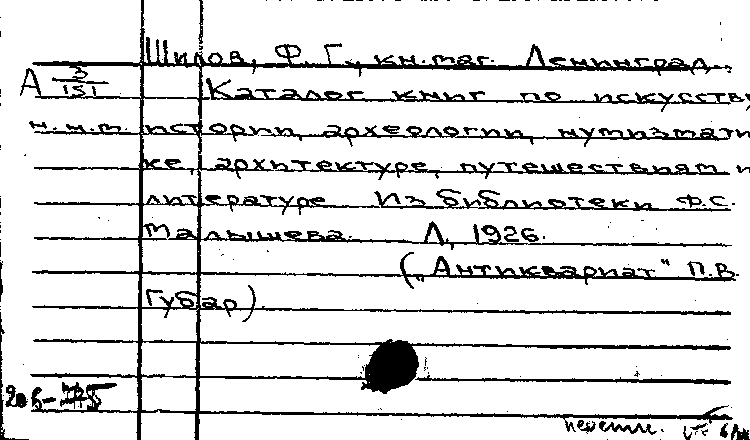 Шилов, Ф. Г., кн. маг. Ленинград.
А 3/151 Каталог книг по искусству,
н.м.т. истории, археологии, нумизмати-
ке, архитектуре, путешествиям и
литературе Из библиотеки Ф.С.
Малышева. Л, 1926.
(„Антиквариат" П.В.
Губар)
206-